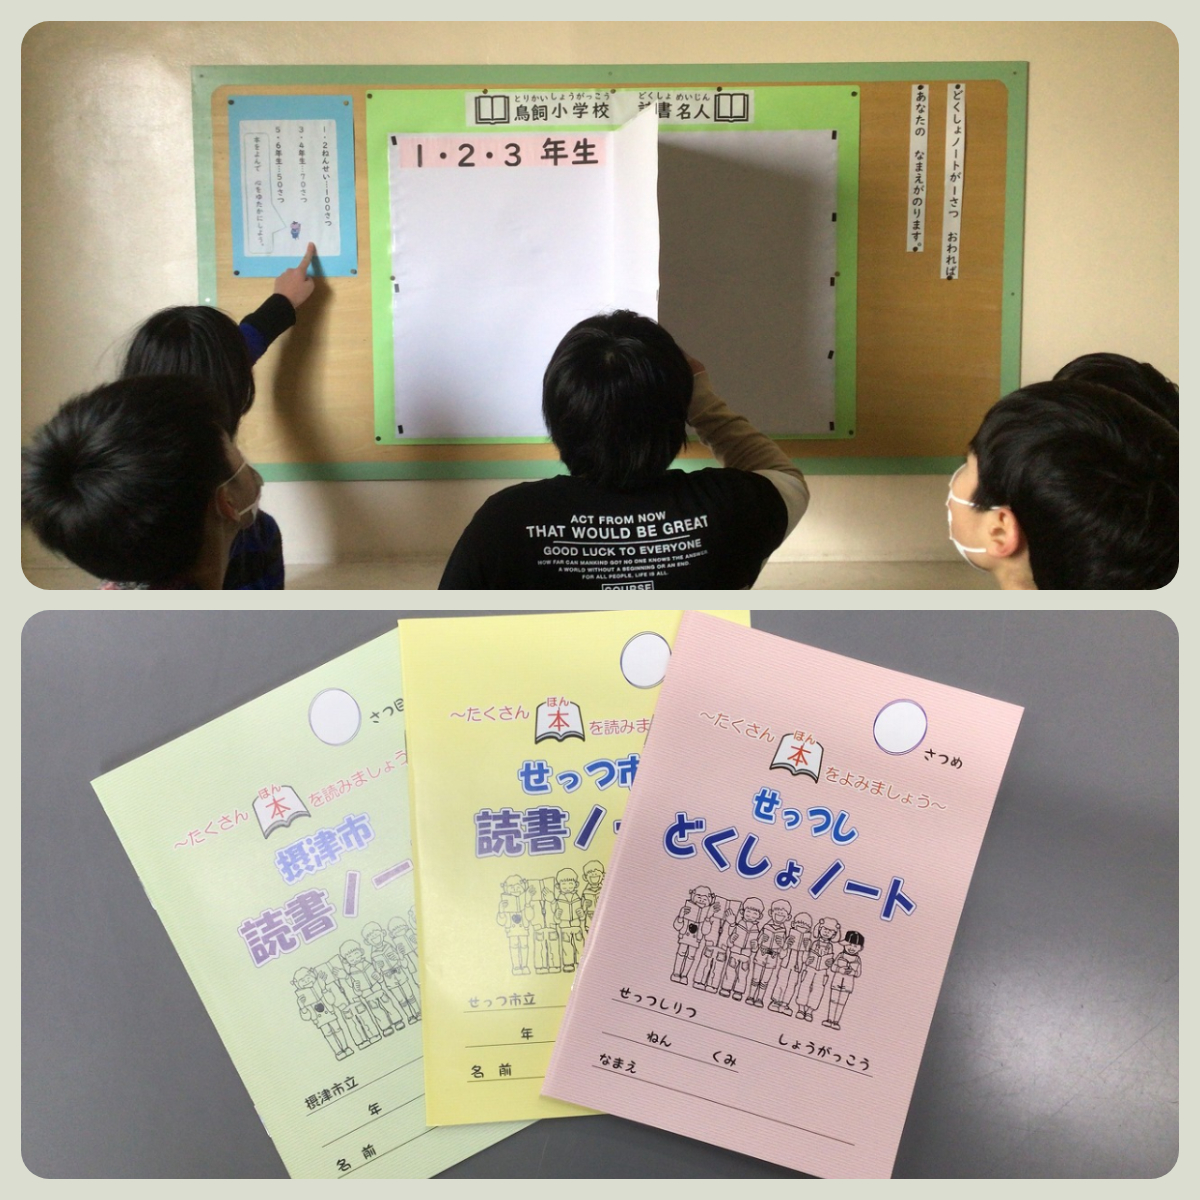 とりかいしょうがっこう
鳥飼小学校
どくしょ めいじん
書名人
1・2・3 年生
1・2ねんせい…100さつ
3・4年生…70さつ
5・6年生…50さつ
本をよんで 心をゆたかにしよう。
どくしょノートが1さつ おわれば
あなたの なまえがのります。
ACT FROM NOW
THAT WOULD BE GREAT
GOOD LUCK TO EVERYONE
HOW FAR CAN MANKIND GO? NO ONE KNOWS THE ANSWER
A WORLD WITHOUT A BEGINNING OR AN END.
FOR ALL PEOPLE, LIFE IS ALL.
COURSE
さつ目
～たくさん
ほん
本
を読みましょう
摂津市
読書ノー
摂津市立
年
名前
～たくさん
ほん
本
を読みま
せっつ市
読書ノ
せっつ市立
年
名前
さつめ
～たくさん
ほん
本
をよみましょう～
せっつし
どくしょノート
せっつしりつ
しょうがっこう
ねん くみ
なまえ